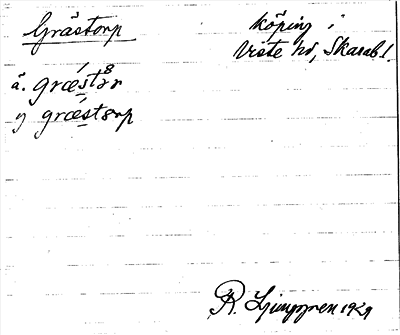 Grästorp
köping i
Viste hd, Skarab l.
ä. græ´stər
y græ´stərp
R. Ljunggren 1929